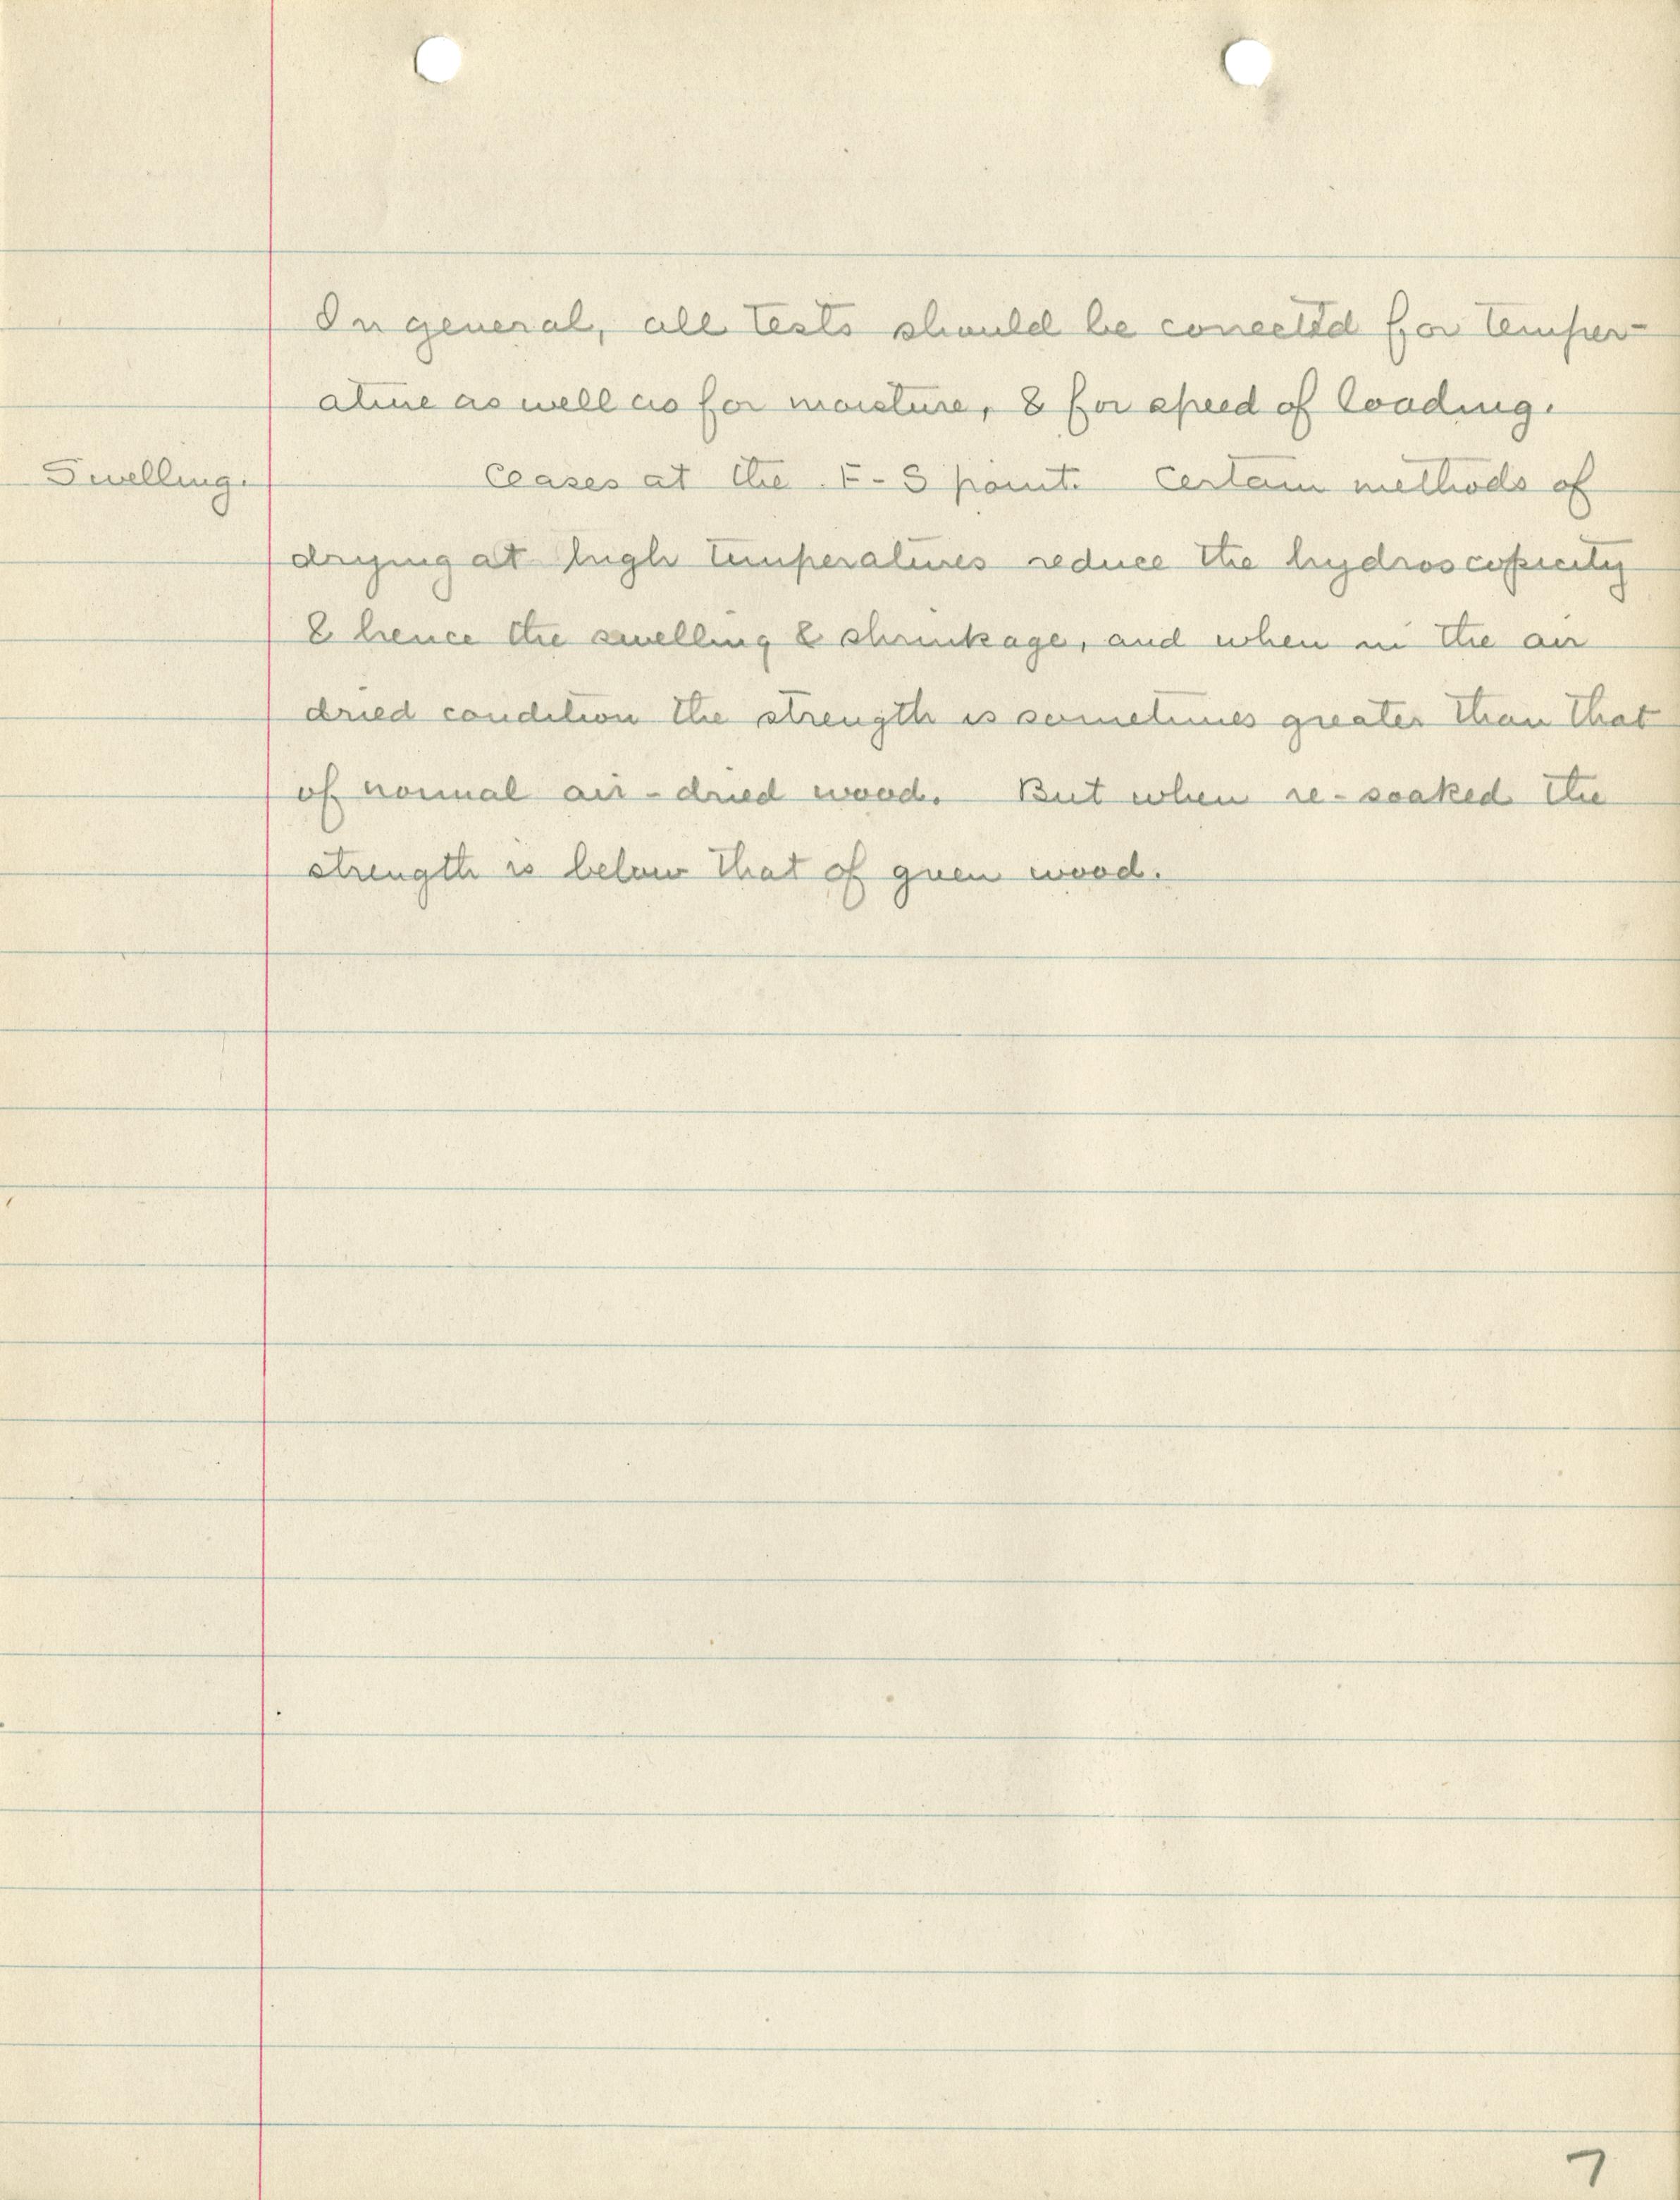 In general, all tests should be corrected for temper-
ature as well as for moisture, & for speed of loading.
Swelling. Ceases at the F-S point. Certain methods of
drying at high temperatures reduce the hydroscopicity
& hence the swelling & shrinkage, and when in the air
dried condition the strength is sometimes greater than that
of normal air-dried wood. But when re-soaked the
strength is below that of green wood.
7